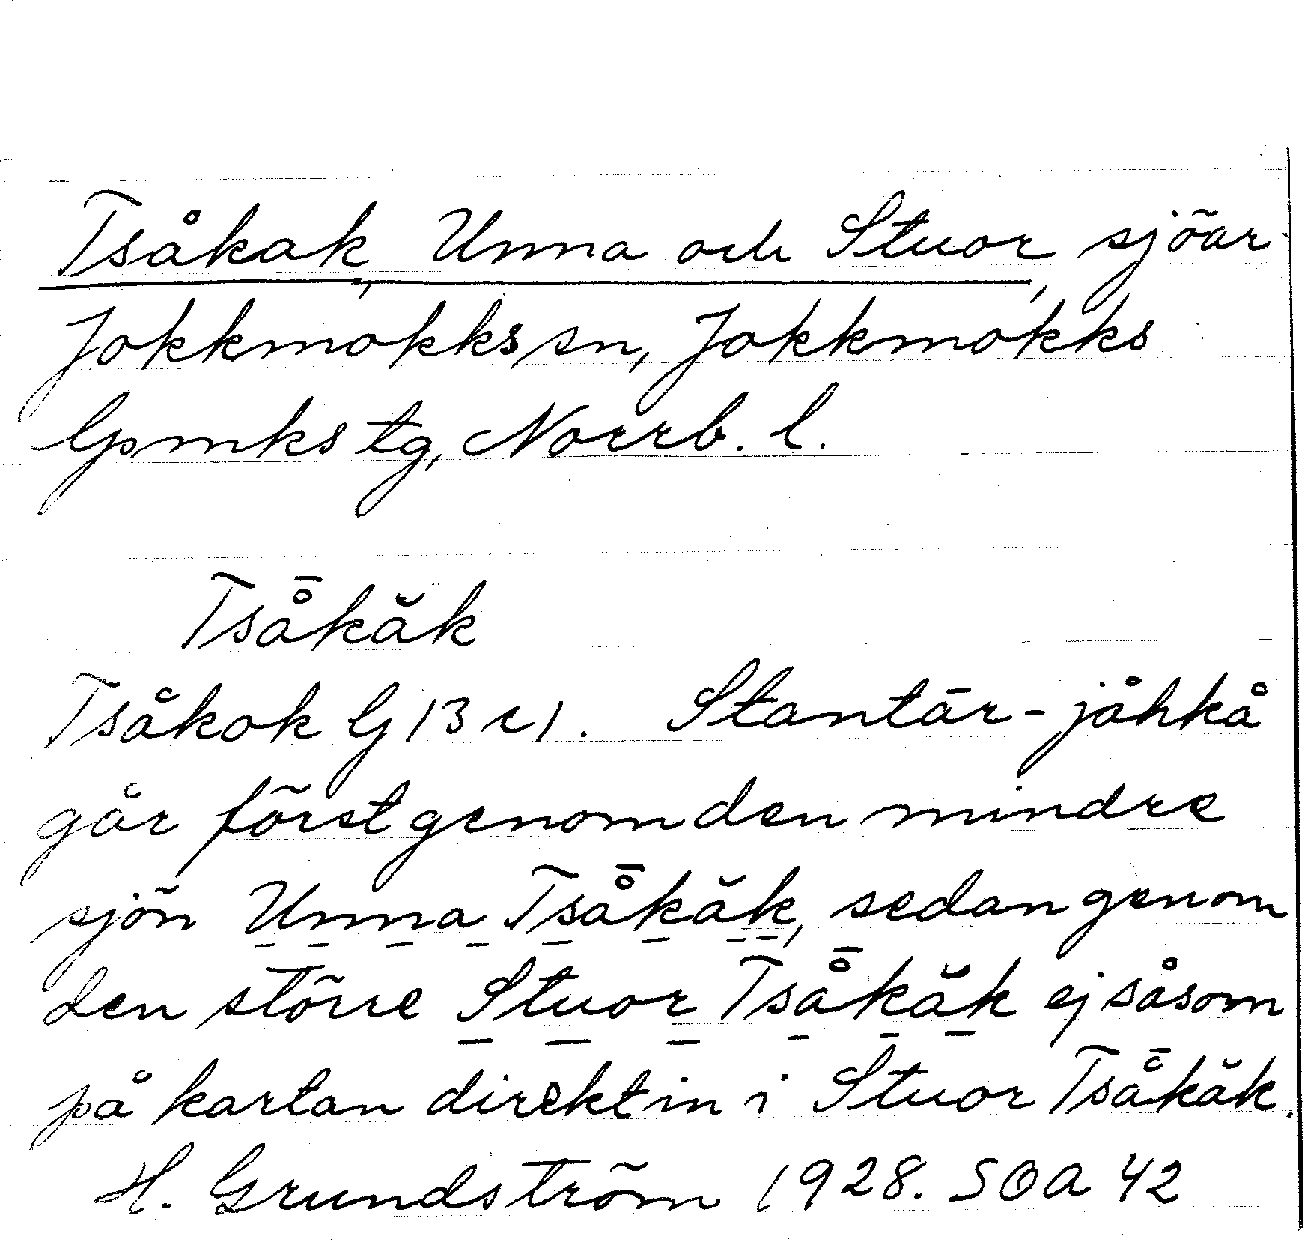 Tsåkak, Unna och Stuor, sjöar
Jokkmokks sn, Jokkmokks
Gpmks tg, Norrb. l.
Tså̄kăk
Tsåkok G 13 c 1. Stantār-jåhkå
går först genom den mindre
sjön Unna Tså̄kăk, sedan genom
den större Stuor Tså̄kăk ej såsom
på kartan direkt in i Stuor Tså̄kăk.
H. Grundström 1928. SOA 42